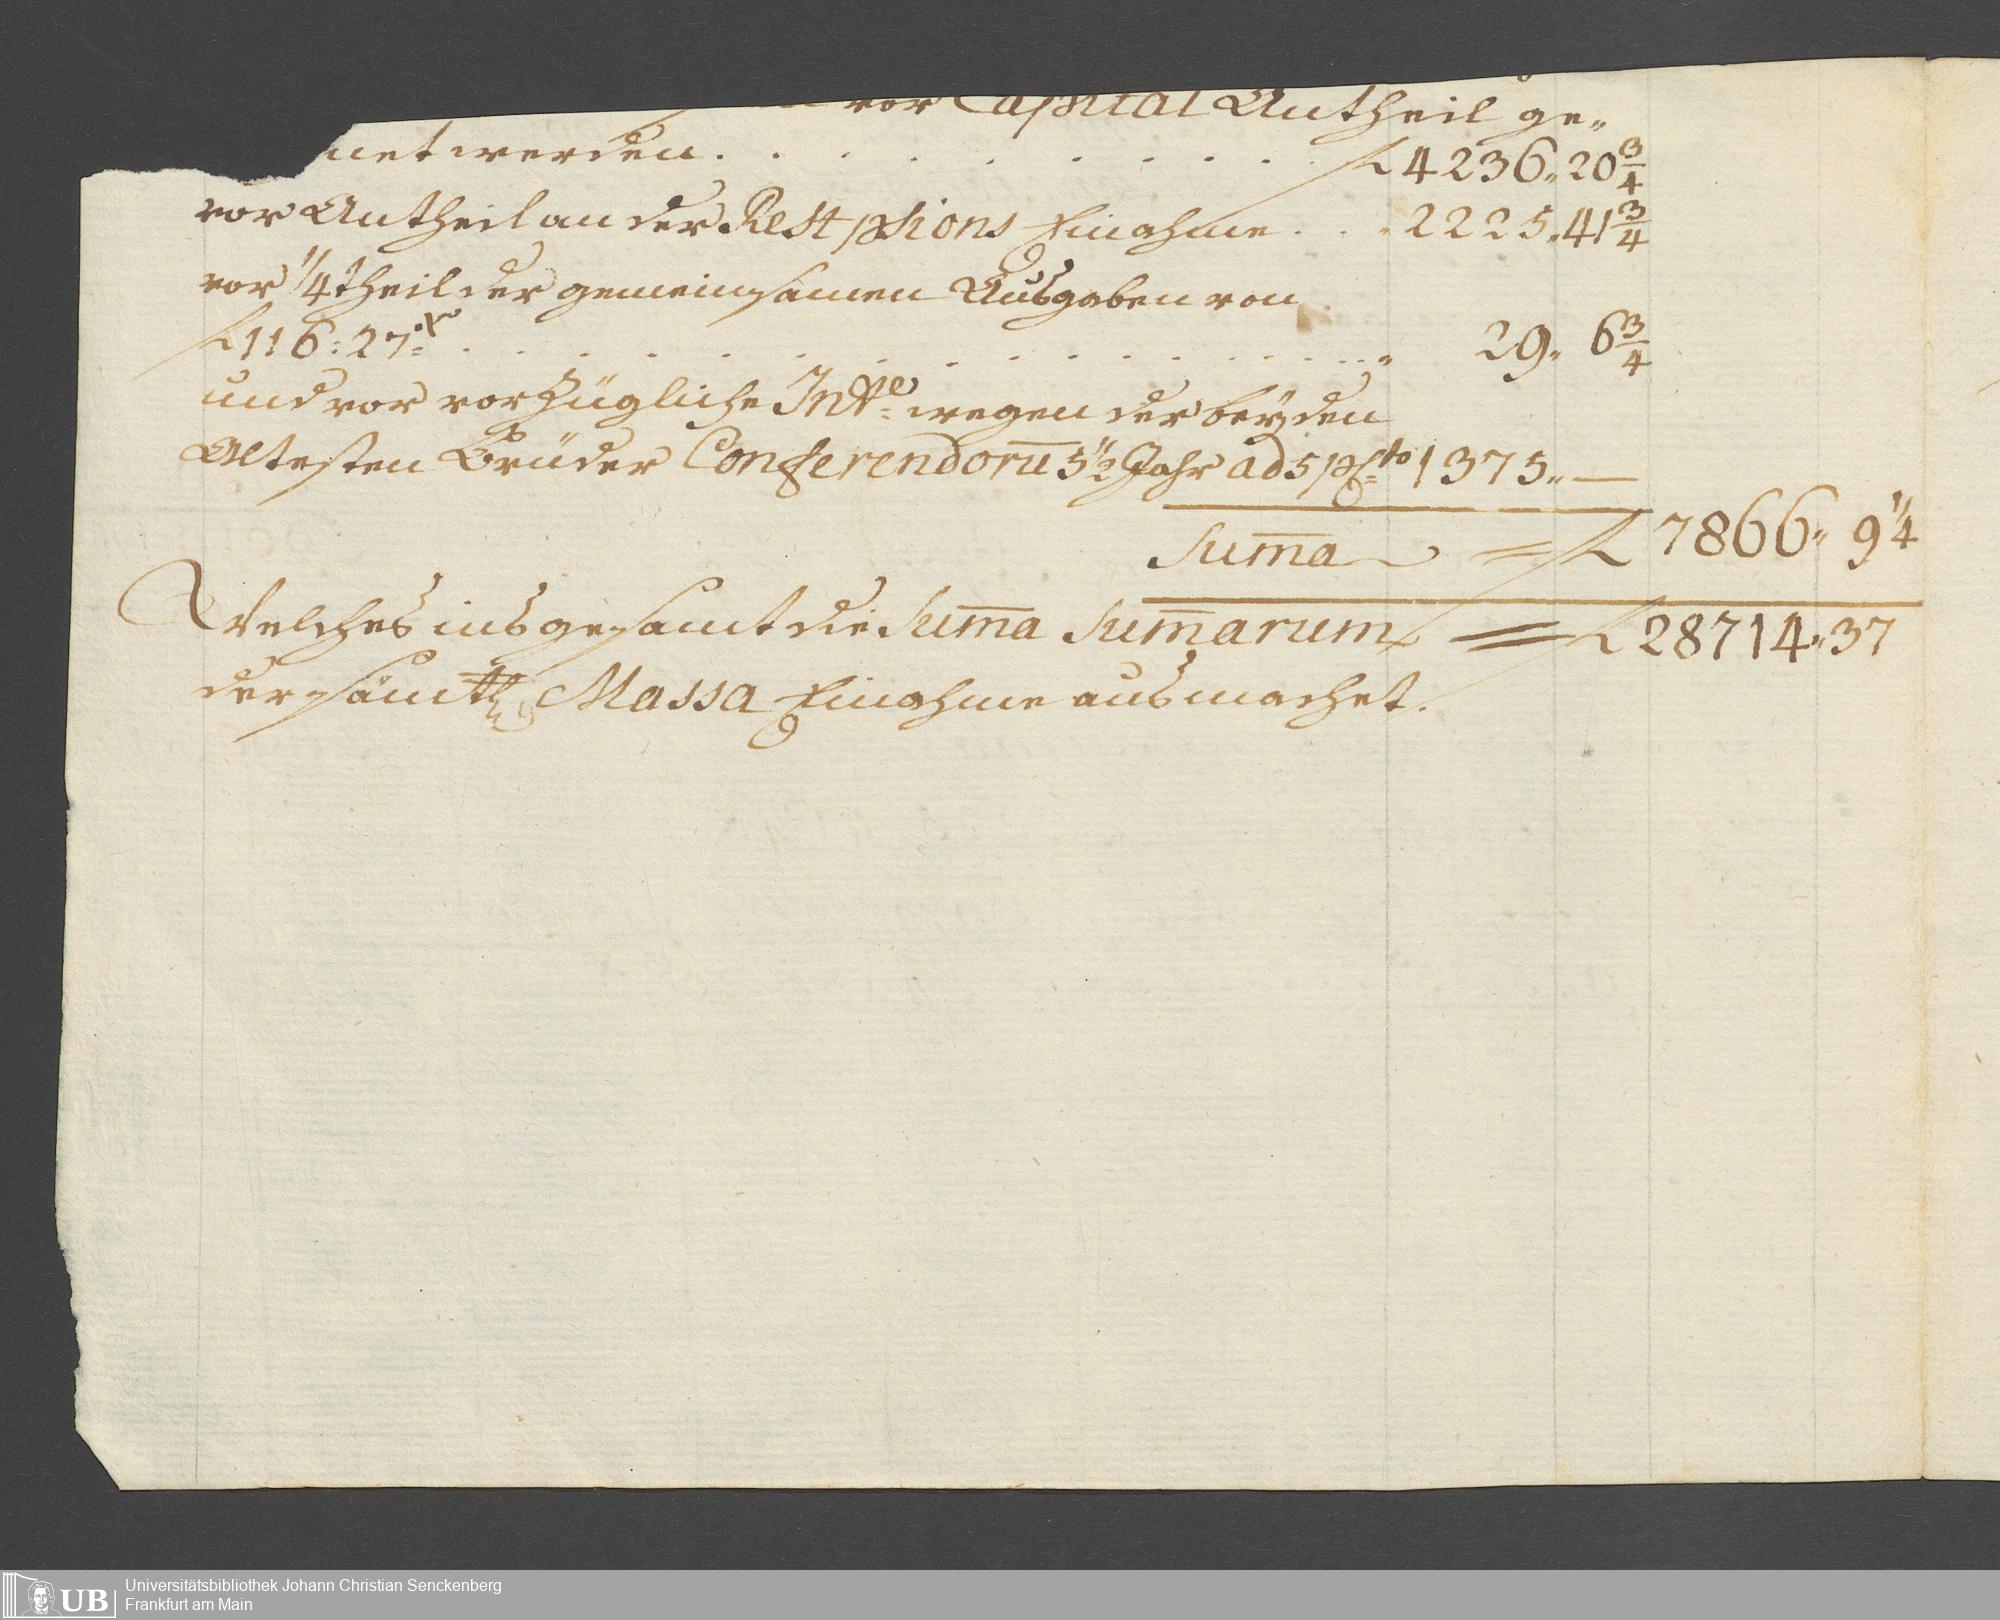 vor Capital Antheil ge„
net werden . . . . . . . . . f 4236„ 20 3/4
vor Antheil an der Rest ptions Einahme . . . 2225„ 41 3/4
vor 1/4 theil der gemeinsamen Ausgaben von
f 116: 27 xr . . . . . . . . . . . . „ 29„ 6 3/4
und vor vorzügliche Inte wegen der beÿden
Ältesten Brüder Conferendoru̅ 5 1/2 Jahr ad 5 pCto 1375„ —
Sum̅a = f 7866„ 9 1/4
Welches ins gesamt die Sum̅a Sum̅arum = f 28714„ 37
der sämtl Massa Einahme ausmachet.
UB
Universitätsbibliothek Johann Christian Senckenberg
Frankfurt am Main